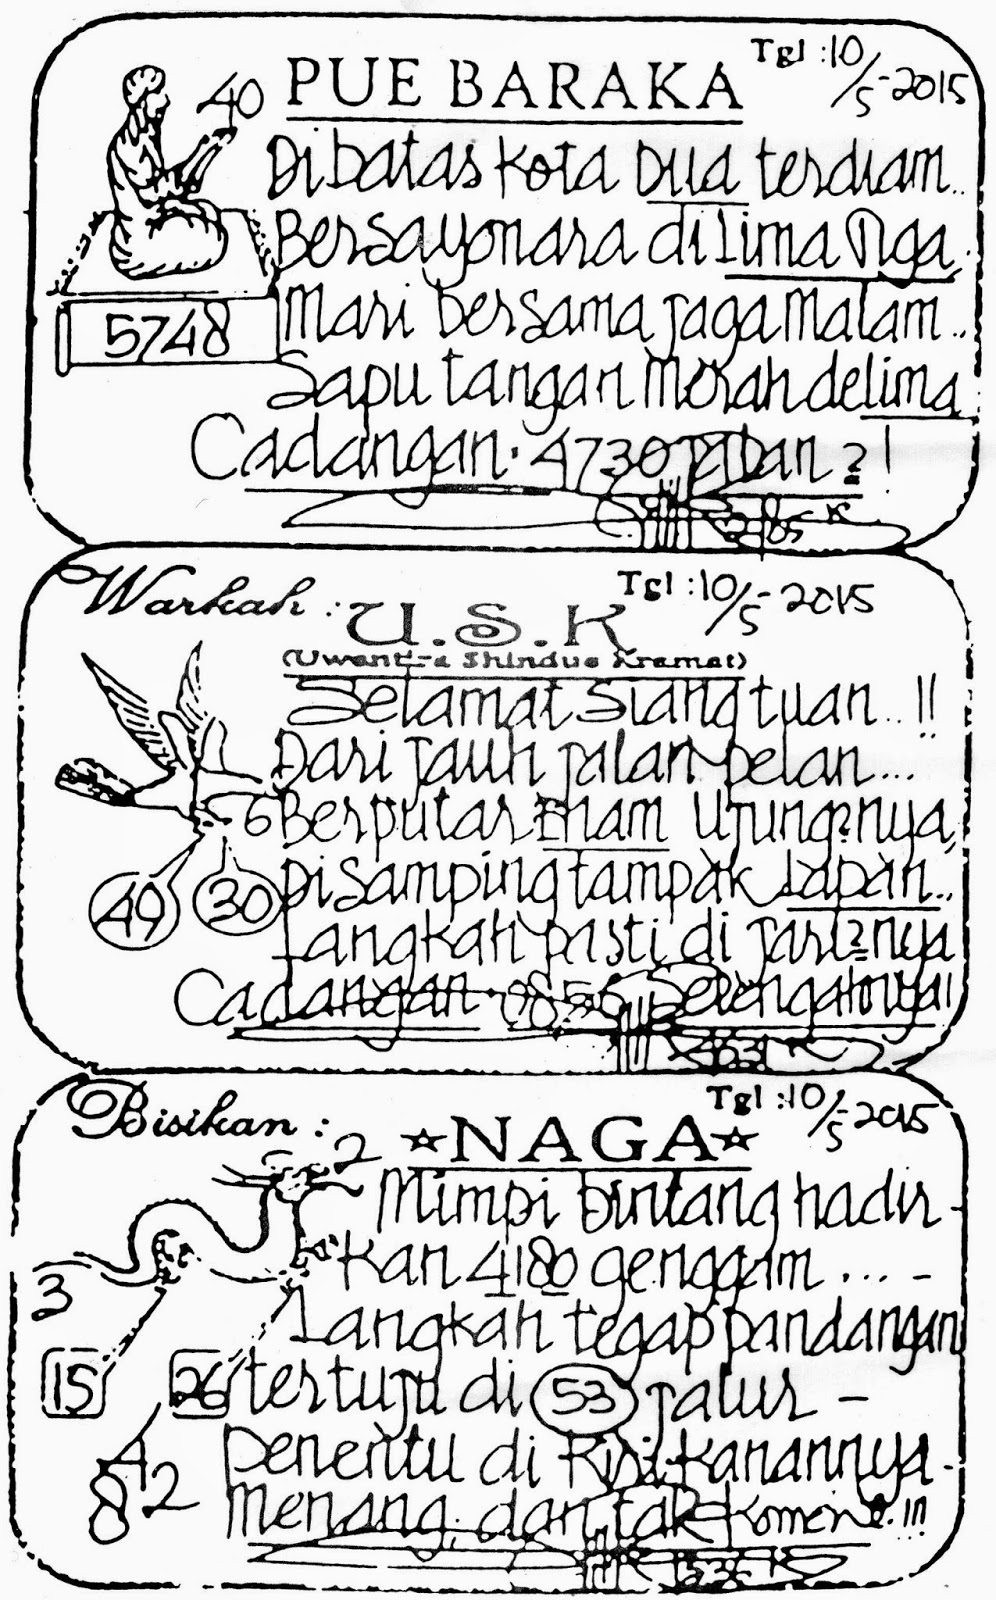 Tgl :10/5-2015
PUE BARAKA
40
Di batas kota Dua terdiam..
Bersayonara di Lima Nga
5748
Mari bersama jaga malam..
Sapu tangan Merah delima
Cadangan. 4730 jaban ? !
Warkah :
U.S.K
Tgl :10/5-2015
(Uwentira Shindue Kramat)
Selamat Siang tuan..!!
Dari jauh jalan pelan...
6
Berputar Enam Ujung2nya,
49
30
Di samping tampak Lapan..
Langkah pasti di jari2nya
Cadangan. 0856 Setengahnya!!
Bisikan :
☆NAGA☆
Tgl :10/5-2015
2
Mimpi bintang hadir-
kan 4180 genggam ....-
3
Langkah tegap pandangan
15
26
tertuju di 53 jalur -
Penentu di Kiri-kanannya.
4
82
Menang, dan tak Komen